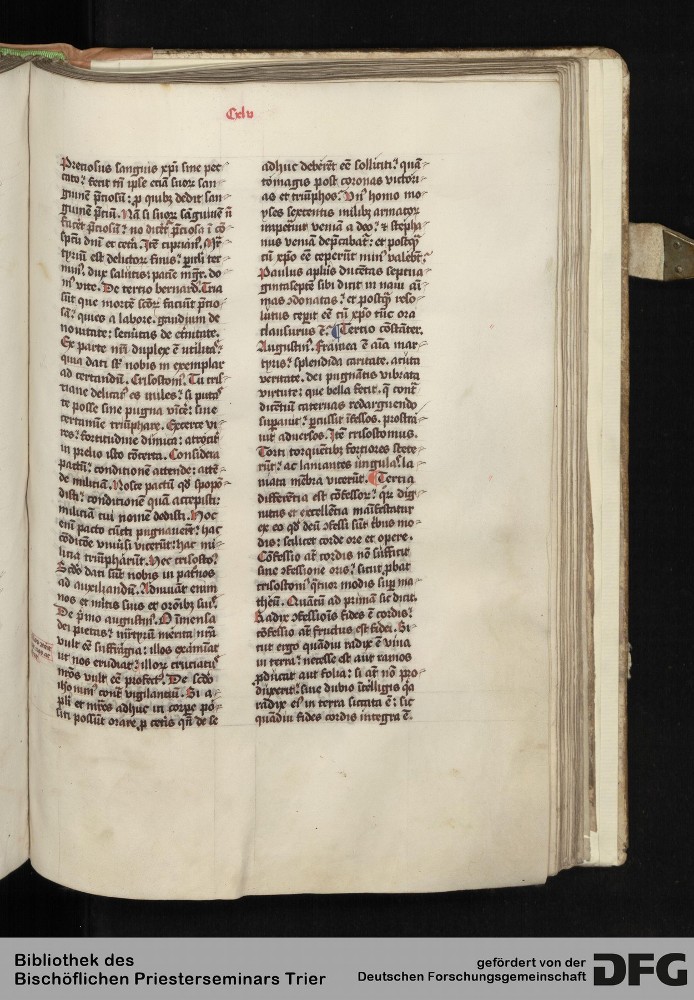 Cxlv
Preciosus sanguis xpi sine pec-
cato? fecit tn ipse eciā suor san-
guinē p̄ciosū: p quibꝫ dedit san-
guinē p̄ciū. Nā si suor sāguinē ñ
facet p̄ciosū? no dicet p̄ciosa ī cō-
spcū dni et cetᷓ. Itē ciprian⁹. Mr-
tyriū est delictor finis? piculi ter-
min⁹. dux salutis: pacie mgr. do-
n⁹ vite. De tercio bernard⁹. Tria
sūt que mortē scōr faciūt p̄cio-
sā? quies a labore. gaudium de
novitate: securitas de etnitate.
Ex parte nrī duplex ē utilitas?
quia dati sūt nobis in exemplar
ad certandū. Crisostom⁹. Tu cris-
tiane delicat⁹ es miles? si putas
te posse sine pugna vīcē: sine
certamine triūphare. Exerce vi-
res? fortitudine dimica: atrocit
in prelio isto cōcerta. Considera
pactū? condicionē attende: attē-
de miliciā. Nosce pactū qd spopō-
disti? condicionē quā accepisti:
miliciā cui nomē dedisti. Hoc
enī pacto cūcti pugnauert? hac
cōdicōe vniūsi vicerūt? hac mi-
licia triūpharūt. Hec crisosto?
Scdo dati sūt nobis in patnos
ad auxiliandū. Adiuuāt enim
nos et mitis suis et orōibꝫ suis.
De pmo augustin⁹. O īmensa
dei pietas? mrtyrū merita nrā
vult eē suffragia: illos examīat
ut nos erudiat? illor cruciatu⁹
nros vult eē profect⁹. De scdo
iheronim⁹ cont vigilantiū. Si a-
pli et mres adhuc in corpe po-
siti possūt orare p cetis qn de se
adhuc deberēt eē solliciti? quā-
tomagis post coronas victori-
as et triūphos. Vn⁹ homo mo-
yses sexcentis milibꝫ armator
impetrat veniā a deo? et stepha-
nus veniā dep̄cabat: et postqꝫ
cū xpo eē ceperūt min⁹ valebūt?
Paulus aplus ducētas septua-
gintasepte sibi dicit in naui aī-
mas donatas? et postqꝫ reso-
lutus cepit eē cū xpo tūc ora
clausurus ē? Tertio cōstāter.
Augustin⁹. Framea ē aīa mar-
tyris? splendida caritate. acuta
veritate. dei pugnātis vibrata
virtute: que bella fecit. q cont
dicētiū cateruas redarguendo
supauit? pcussit īfessos. prostra-
uit aduersos. Itē crisostomus.
Torti torquētibꝫ forciores stete-
rūt? ac laniantes ūngulas la-
niata mēbra vicerūt. Tercia
differētia est cōfessor? qr dig-
nitas et excellēcia manifestatur
ex eo qd deū ꝯfessi sūt tribus mo-
dis: scilicet corde ore et opere.
Cōfessio at cordis nō sufficit
sine ꝯfessione oris? sicut pbat
crisostom⁹ qtuor modis sup ma-
theū. Quātū ad prima sic dicit.
Radix ꝯfessionis fides ē cordis?
cōfessio at fructus est fidei. Si-
cut ergo quādiu radix ē viua
in terra? necesse est aut ramos
pducat aut folia: si at nō pro-
duxerit? sine dubio ītelligis qa
radix ei⁹ in terra siccata ē: sic
quādiu fides cordis integra ē.
Bibliothek des
Bischöflichen Priesterseminars Trier
gefördert von der
Deutschen Forschungsgemeinschaft
DFG